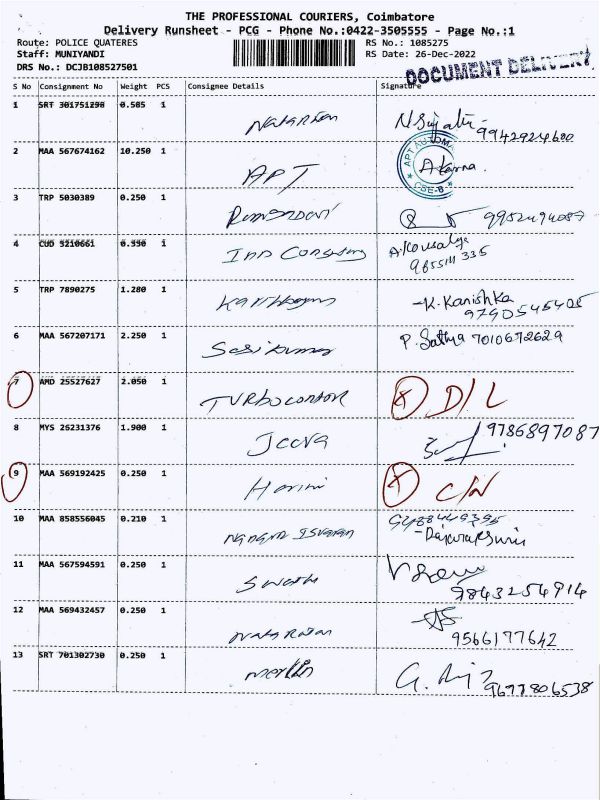 THE PROFESSIONAL COURIERS, Coimbatore
Delivery Runsheet - PCG - Phone No.:0422-3505555 - Page No.:1
Route: POLICE QUATERES RS No.: 1085275
Staff: MUNIYANDI RS Date: 26-Dec-2022
DRS No.: DCJB108527501 DOCUMENT DELIVERY
S No Consignment No Weight PCS Consignee Details Signature
1 SRT 301751290 0.505 1 Natarajan 9942924600
2 MAA 567674162 10.250 1 APT APT AUTOMA CBE-6
3 TRP 5030389 0.250 1 9952494087
4 CUD 5210661 0.550 1 IND Consulting A.Kousalya
9655111335
5 TRP 7890275 1.280 1 -K. Kanishka
9790545405
6 MAA 567207171 2.250 1 Sasikumar P. Sathya 7010672629
7 AMD 25527627 2.050 1 X D/L
8 MYS 26231376 1.900 1 Jeeva 9786897087
9 MAA 569192425 0.250 1 Harini X C/N
10 MAA 858556045 0.210 1 9488449395
-Rajarajeswari
11 MAA 567594591 0.250 1 Swathi 9843254914
12 MAA 569432457 0.250 1 Natarajan
9566177642
13 SRT 701302730 0.250 1 Merlin 9677806538